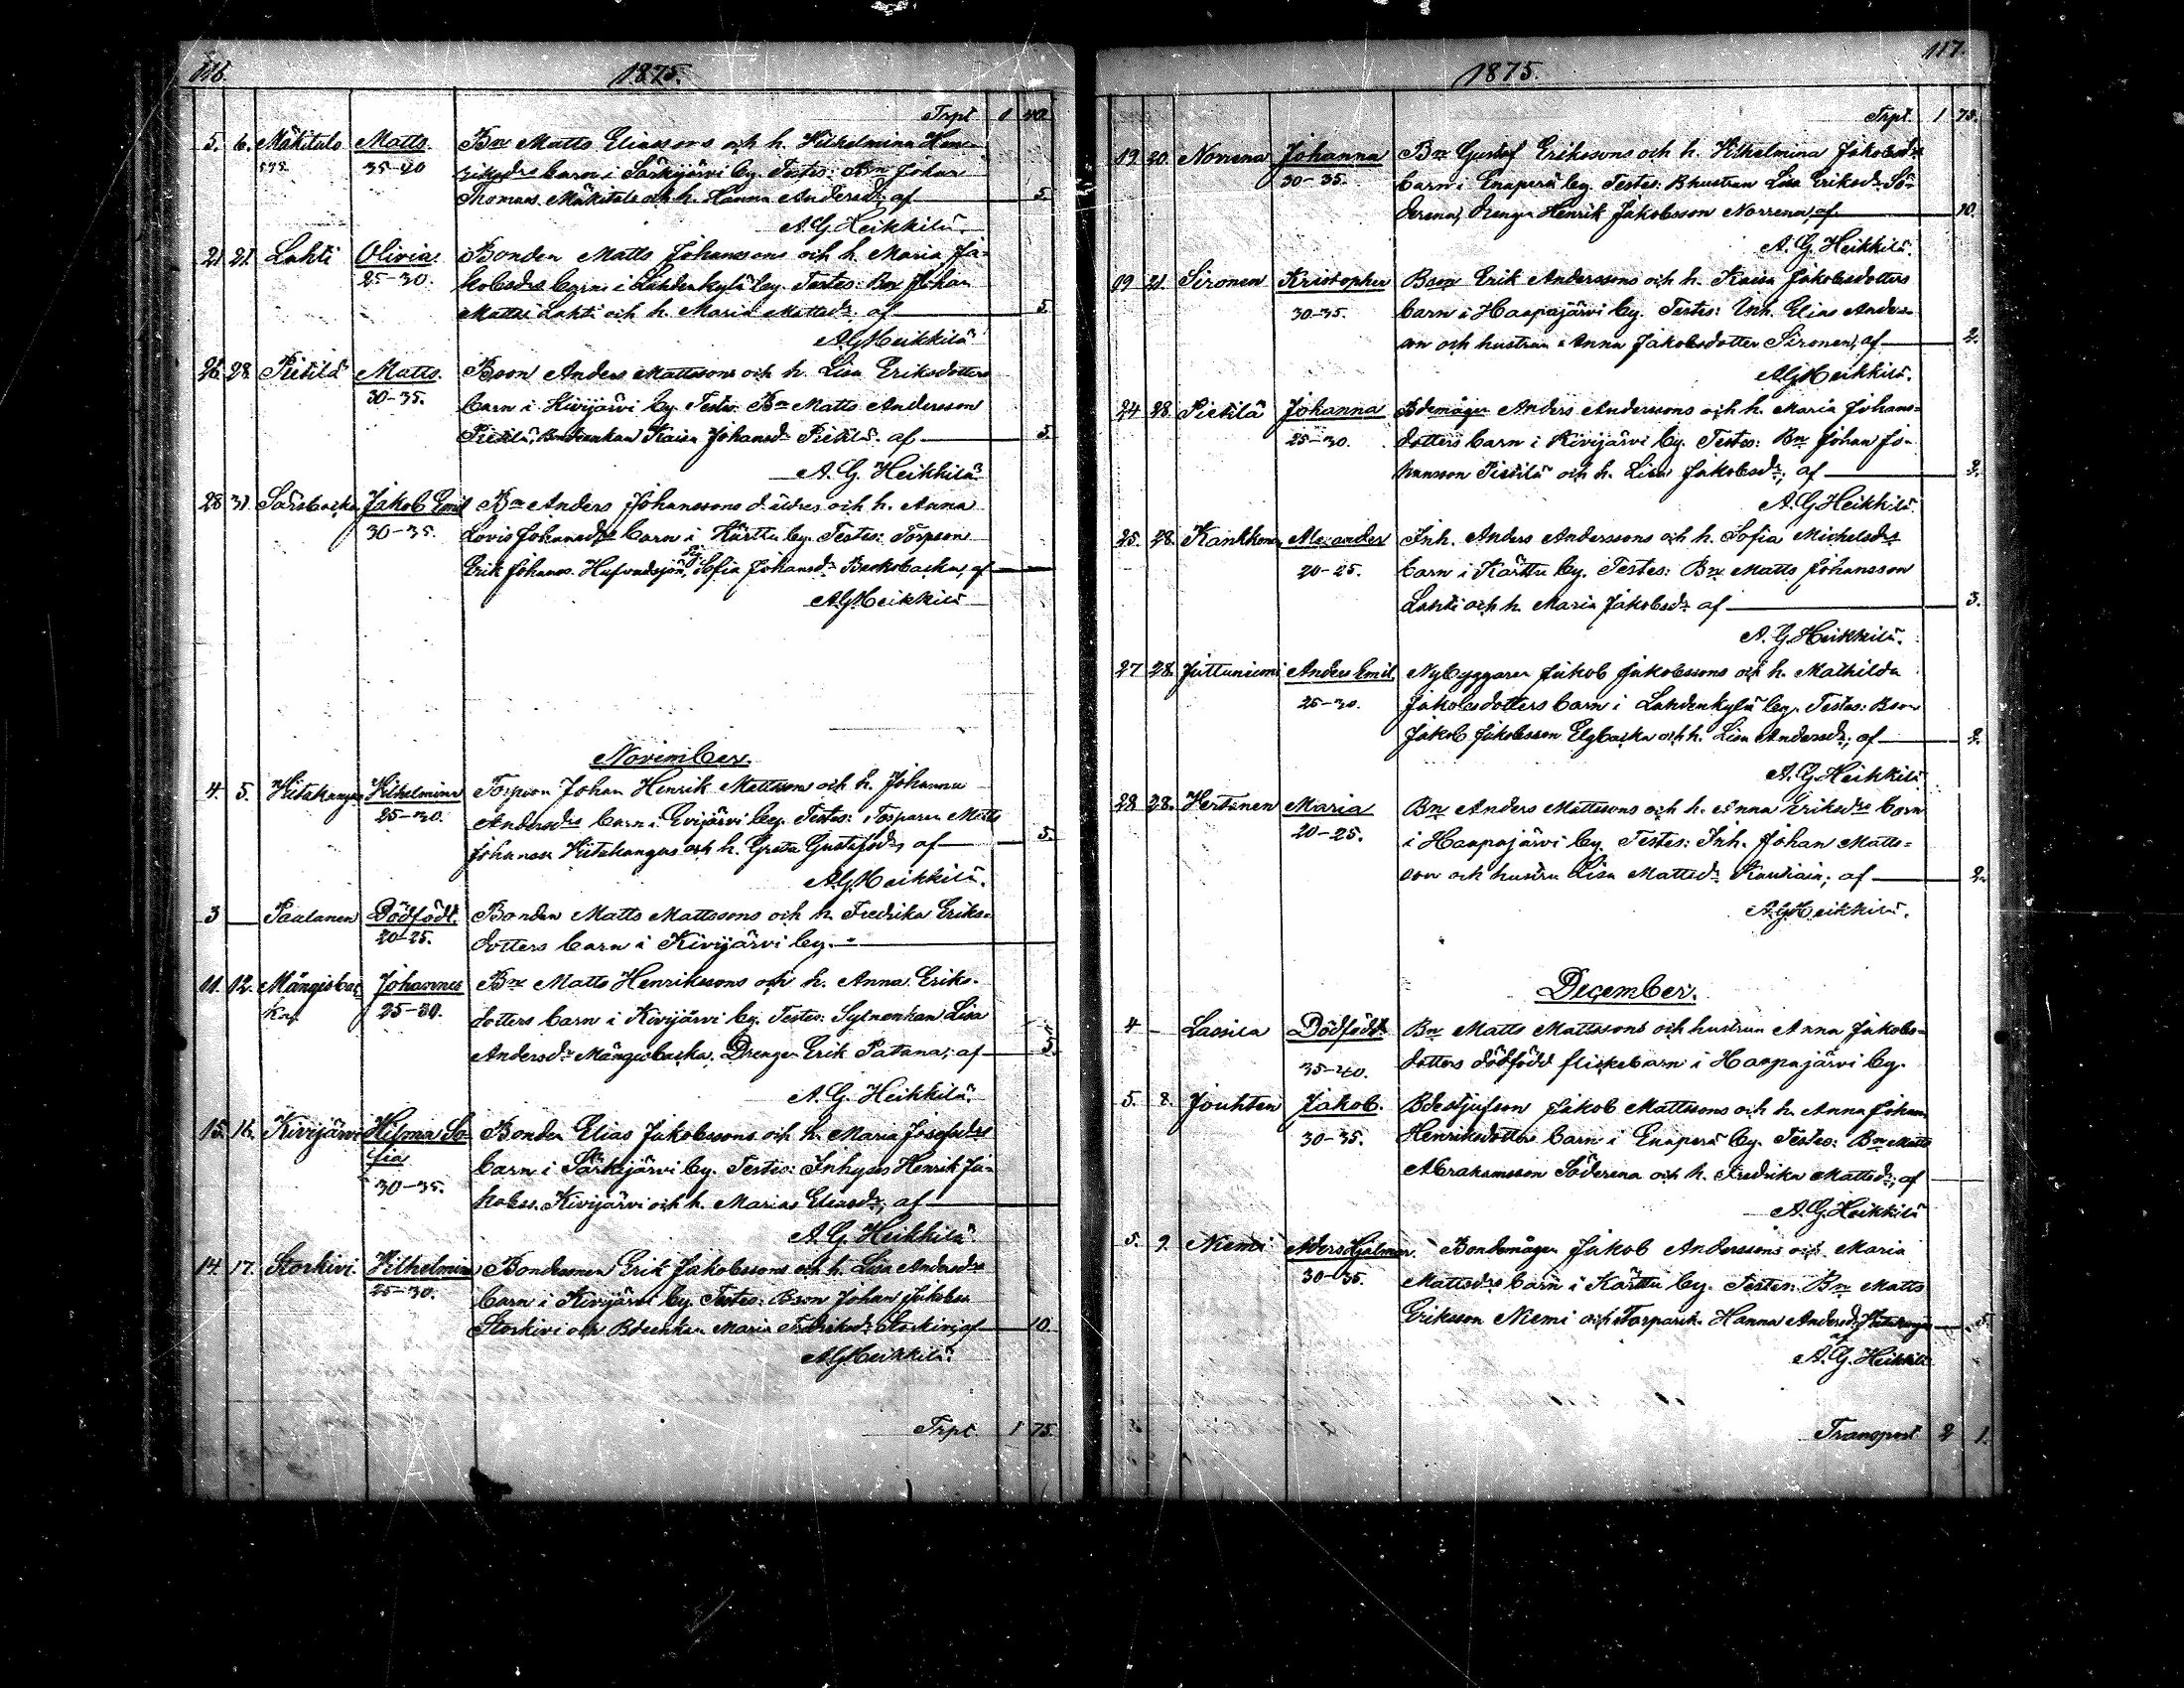 116.
1875.
Trpt 1 40
5. 6. Mäkitalo Matts. Bn Matts Eliassons och h. Wilhelmina Hen-
35-40 riksdrs barn i Särkijärvi by. Testes: Bn Johan
Thomass. Mäkitalo och h. Hanna Andersdr, af 5
A. G. Heikkilä.
21 21. Lahti Olivia Bonden Matts Johanssons och h. Maria Ja-
25-30. kobsdrs barn i Lahdenkylä by. Testes: Bn Johan
Mattss Lahti och h. Maria Mattsdr. af 5
A G Heikkilä
26. 28. Pietilä Matts. Bson Anders Mattssons och h. Lisa Eriksdotters
30-35. barn i Kivijärvi by. Testes: Bn Matts Andersson
Pietilä, Kaisa Johansd. Pietilä. af 5.
A. G. Heikkilä
28 31. Särsbacka Jakob Emil Bn Anders Johanssons d. äldres och h. Anna
30-35. Lovis Johansdrs barn i Kärttu by. Testes: Torpson
Erik Johanss. Hufvudsjön, Pig. Sofia Johansdr , af
A. G. Heikkilä
November.
4. 5. Hietakangas Wilhelmina Torpson Johan Henrik Mattssons och h. Johanna
25-30. Andersdrs barn i Evijärvi by. Testes: Torparen Matts
Johansson Hietakangas och h. Greta Gustafsdr, af 5.
A. G. Heikkilä.
3 — Paalanen Dödfödt. Bonden Matts Mattssons och h. Fredrika Eriks-
20-25. dotters barn i Kivijärvi by.
11. 12. Mängisbac- Johannes Bn Matts Henrikssons och h. Anna Eriks-
ka. 25-30. dotters barn i Kivijärvi by. Testes: Sytnenkan Lisa
Andersdr Mängisbacka, Drengen Erik Patana, af 5.
A. G. Heikkilä.
15. 16. Kivijärvi Hilma So- Bonden Elias Jakobssons och h. Maria Josefsdrs
fia barn i Särkijärvi by. Testes: Inhyses Henrik Ja-
30-35. kobss. Kivijärvi och h. Marias Eliasdr, af
A. G. Heikkilä
14. 17. Storkivi. Wilhelmina Erik Jakobssons och h. Lisa Andersdrs
25-30. barn i Kivijärvi by. Testes: Bson Johan Jakobss
Storkivi och Maria Storkivi, af 10.
A G Heikkilä.
Trpt 1 75.
117.
1875.
Trpt. 1 75.
19. 20. Norrena Johanna Bn Gustaf Erikssons och h. Wilhelmina Jakobsdrs
30-35. barn i Enaperä by. Testes: Bhustrun Lisa Eriksdr Sö-
derena, Drengen Henrik Jakobsson Norrena, af 10.
A. G. Heikkilä.
19 21. Sironen Kristopher Bson Erik Anderssons och h. Kaisa Jakobsdotters
30-35. barn i Haapajärvi by. Testes: Inh. Elias Anders-
son och hustrun Anna Jakobsdotter Sironen, af 2.
A G Heikkilä.
24 28. Pietilä Johanna Bdemågen Anders Anderssons och h. Maria Johans-
25-30. dotters barn i Kivijärvi by. Testes: Bn Johan Jo-
hansson Pietilä och h. Lisa Jakobsdr, af 2.
A. G Heikkilä.
25. 28. Kankkonen Alexander Inh. Anders Anderssons och h. Sofia Michelsdrs
20-25. barn i Kärttu by. Testes: Bn Matts Johansson
Lahti och h. Maria Jakobsdr af 3.
A. G. Heikkilä.
27 28. Juttuniemi Anders Emil. Nybyggaren Jakob Jakobssons och h. Mathilda
25-30. Jakobsdotters barn i Lahdenkylä by. Testes: Bson
Jakob Jakobsson Elgbacka och h. Lisa Andersdr, af 2.
A. G. Heikkilä
28 28. Hertanen Maria Bn Anders Mattssons och h. Anna Eriksdrs barn
20-25. i Haapajärvi by. Testes: Inh. Johan Matts-
son och hustru Lisa Mattsdr , af 2.
A. G. Heikkilä.
December.
4 — Lassila Dödfödt Bn Matts Mattssons och hustrun Anna Jakobs-
35-40. dotters dödfödd flickebarn i Haapajärvi by.
5. 8. Jouhten Jakob. Jakob Mattssons och h. Anna Johan
30-35. Henriksdotters barn i Enaperä by. Testes: Bn Matts
Abrahamsson Söderena och h. Fredrika Mattsdr, af
A. G. Heikkilä
5. 9. Niemi Anders Hjalmar Bondemågen Jakob Anderssons och Maria
30-35. Mattsdrs barn i Kärttu by. Testes: Bn Matts
Eriksson Niemi och Torparh. Hanna Andersdr af 5.
A. G. Heikkilä
Transport 2 1.